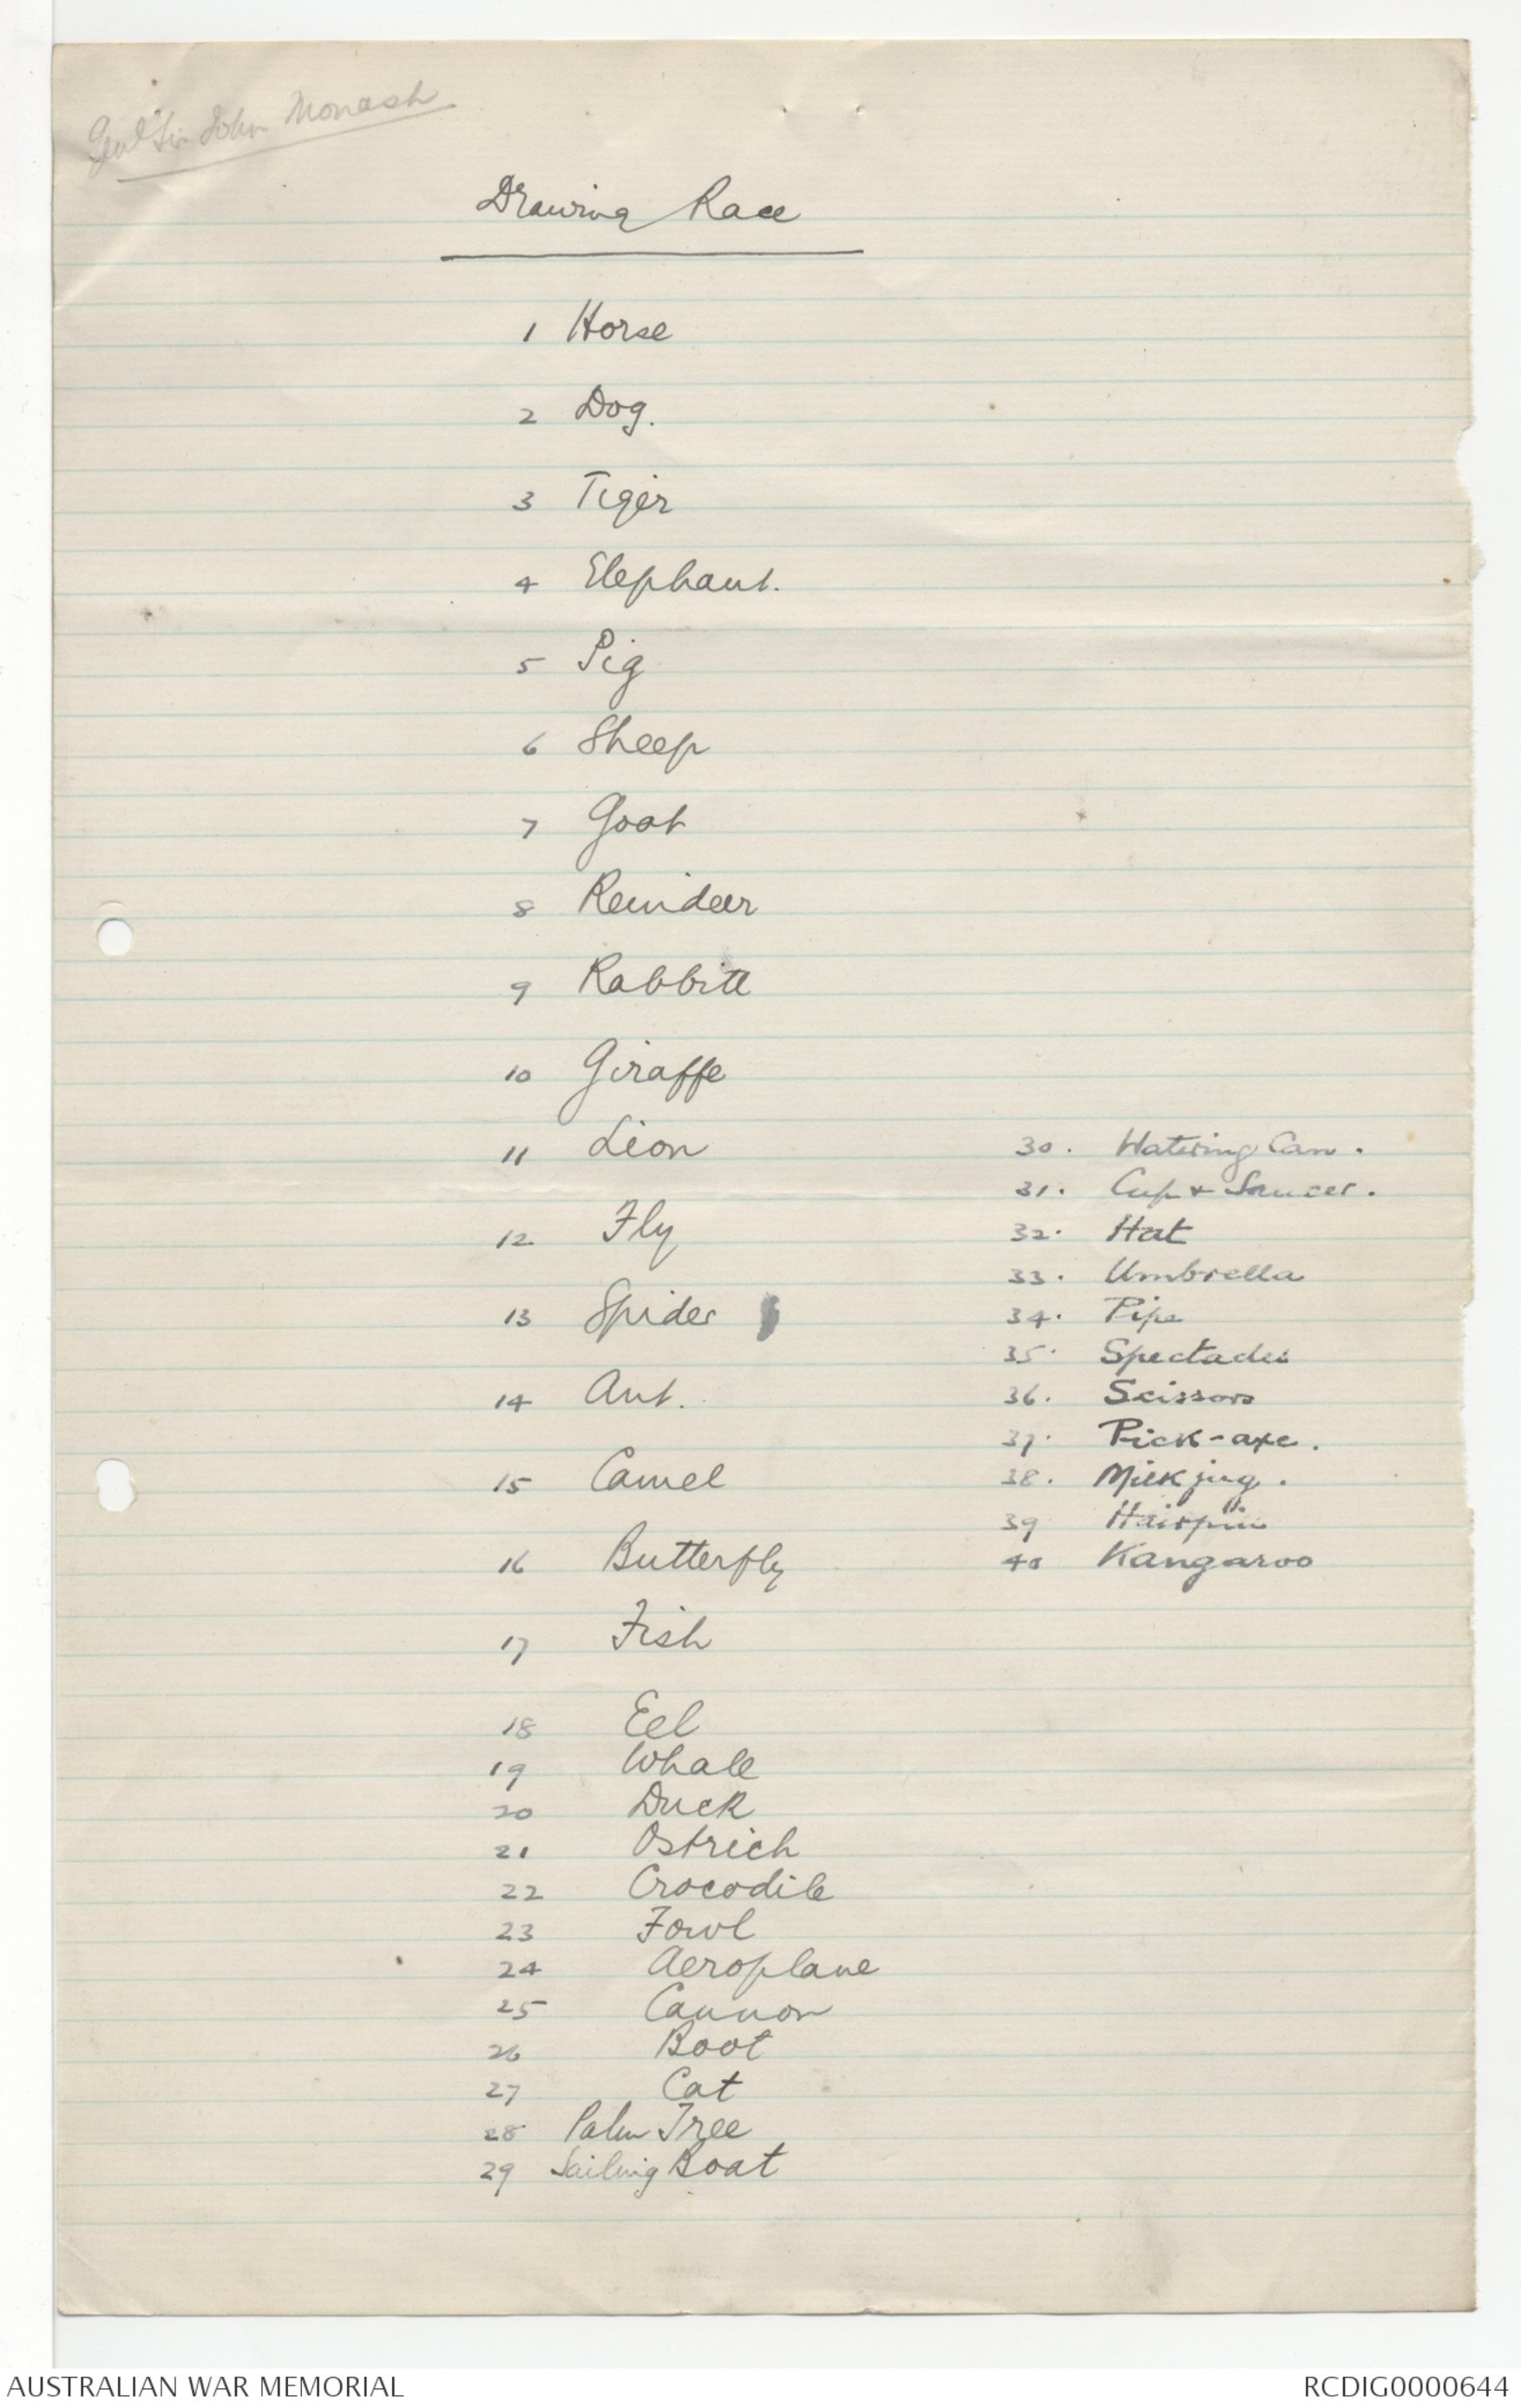 Genl Sir John Monash
Drawing Race
1 Horse
2 Dog.
3 Tiger
4 Elephant.
5 Pig
6 Sheep
7 Goat
8 Reindeer
9 Rabbitt
10 Giraffe
11 Lion
12 Fly
13 Spider
14 Ant.
15 Camel
16 Butterfly
17 Fish
18 Eel
19 Whale
20 Duck
21 Ostrich
22 Crocodile
23 Fowl
24 Aeroplane
25 Cannon
26 Boot
27 Cat
28 Palm Tree
29 Sailing Boat
30. Watering Can.
31. Cup & Saucer.
32. Hat
33. Umbrella
34. Pipe
35. Spectacles
36. Scissors
37. Pick-axe.
38. Milk jug.
39 Hairpin
40 Kangaroo
AUSTRALIAN WAR MEMORIAL
RCDIG0000644